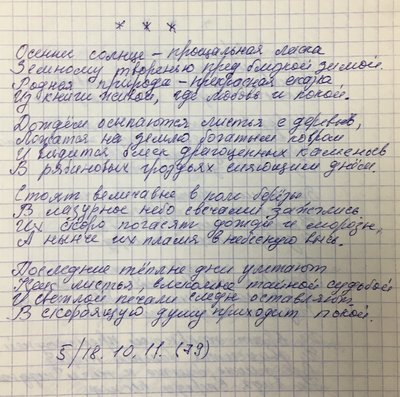 * * *
Осеннее солнце – прощальная ласка
Земному творению пред близкой зимой.
Родная природа – прекрасная сказка
Из книги живой, где любовь и покой.
Дождём осыпаются листья с деревьев,
Ложатся на землю богатым ковром
И видится блеск драгоценных каменьев
В рябиновых гроздьях сияющим днём.
Стоят величаво в поле берёзы
В лазурное небо свечами зажглись
Их скоро погасят дожди и морозы,
А нынче их пламя в небесную высь.
Последние тёплые дни улетают
Как листья, влекомые тайной судьбой
И светлой печали следы оставляют.
В скорбящую душу приходит покой.
5/18.10.11. (79)